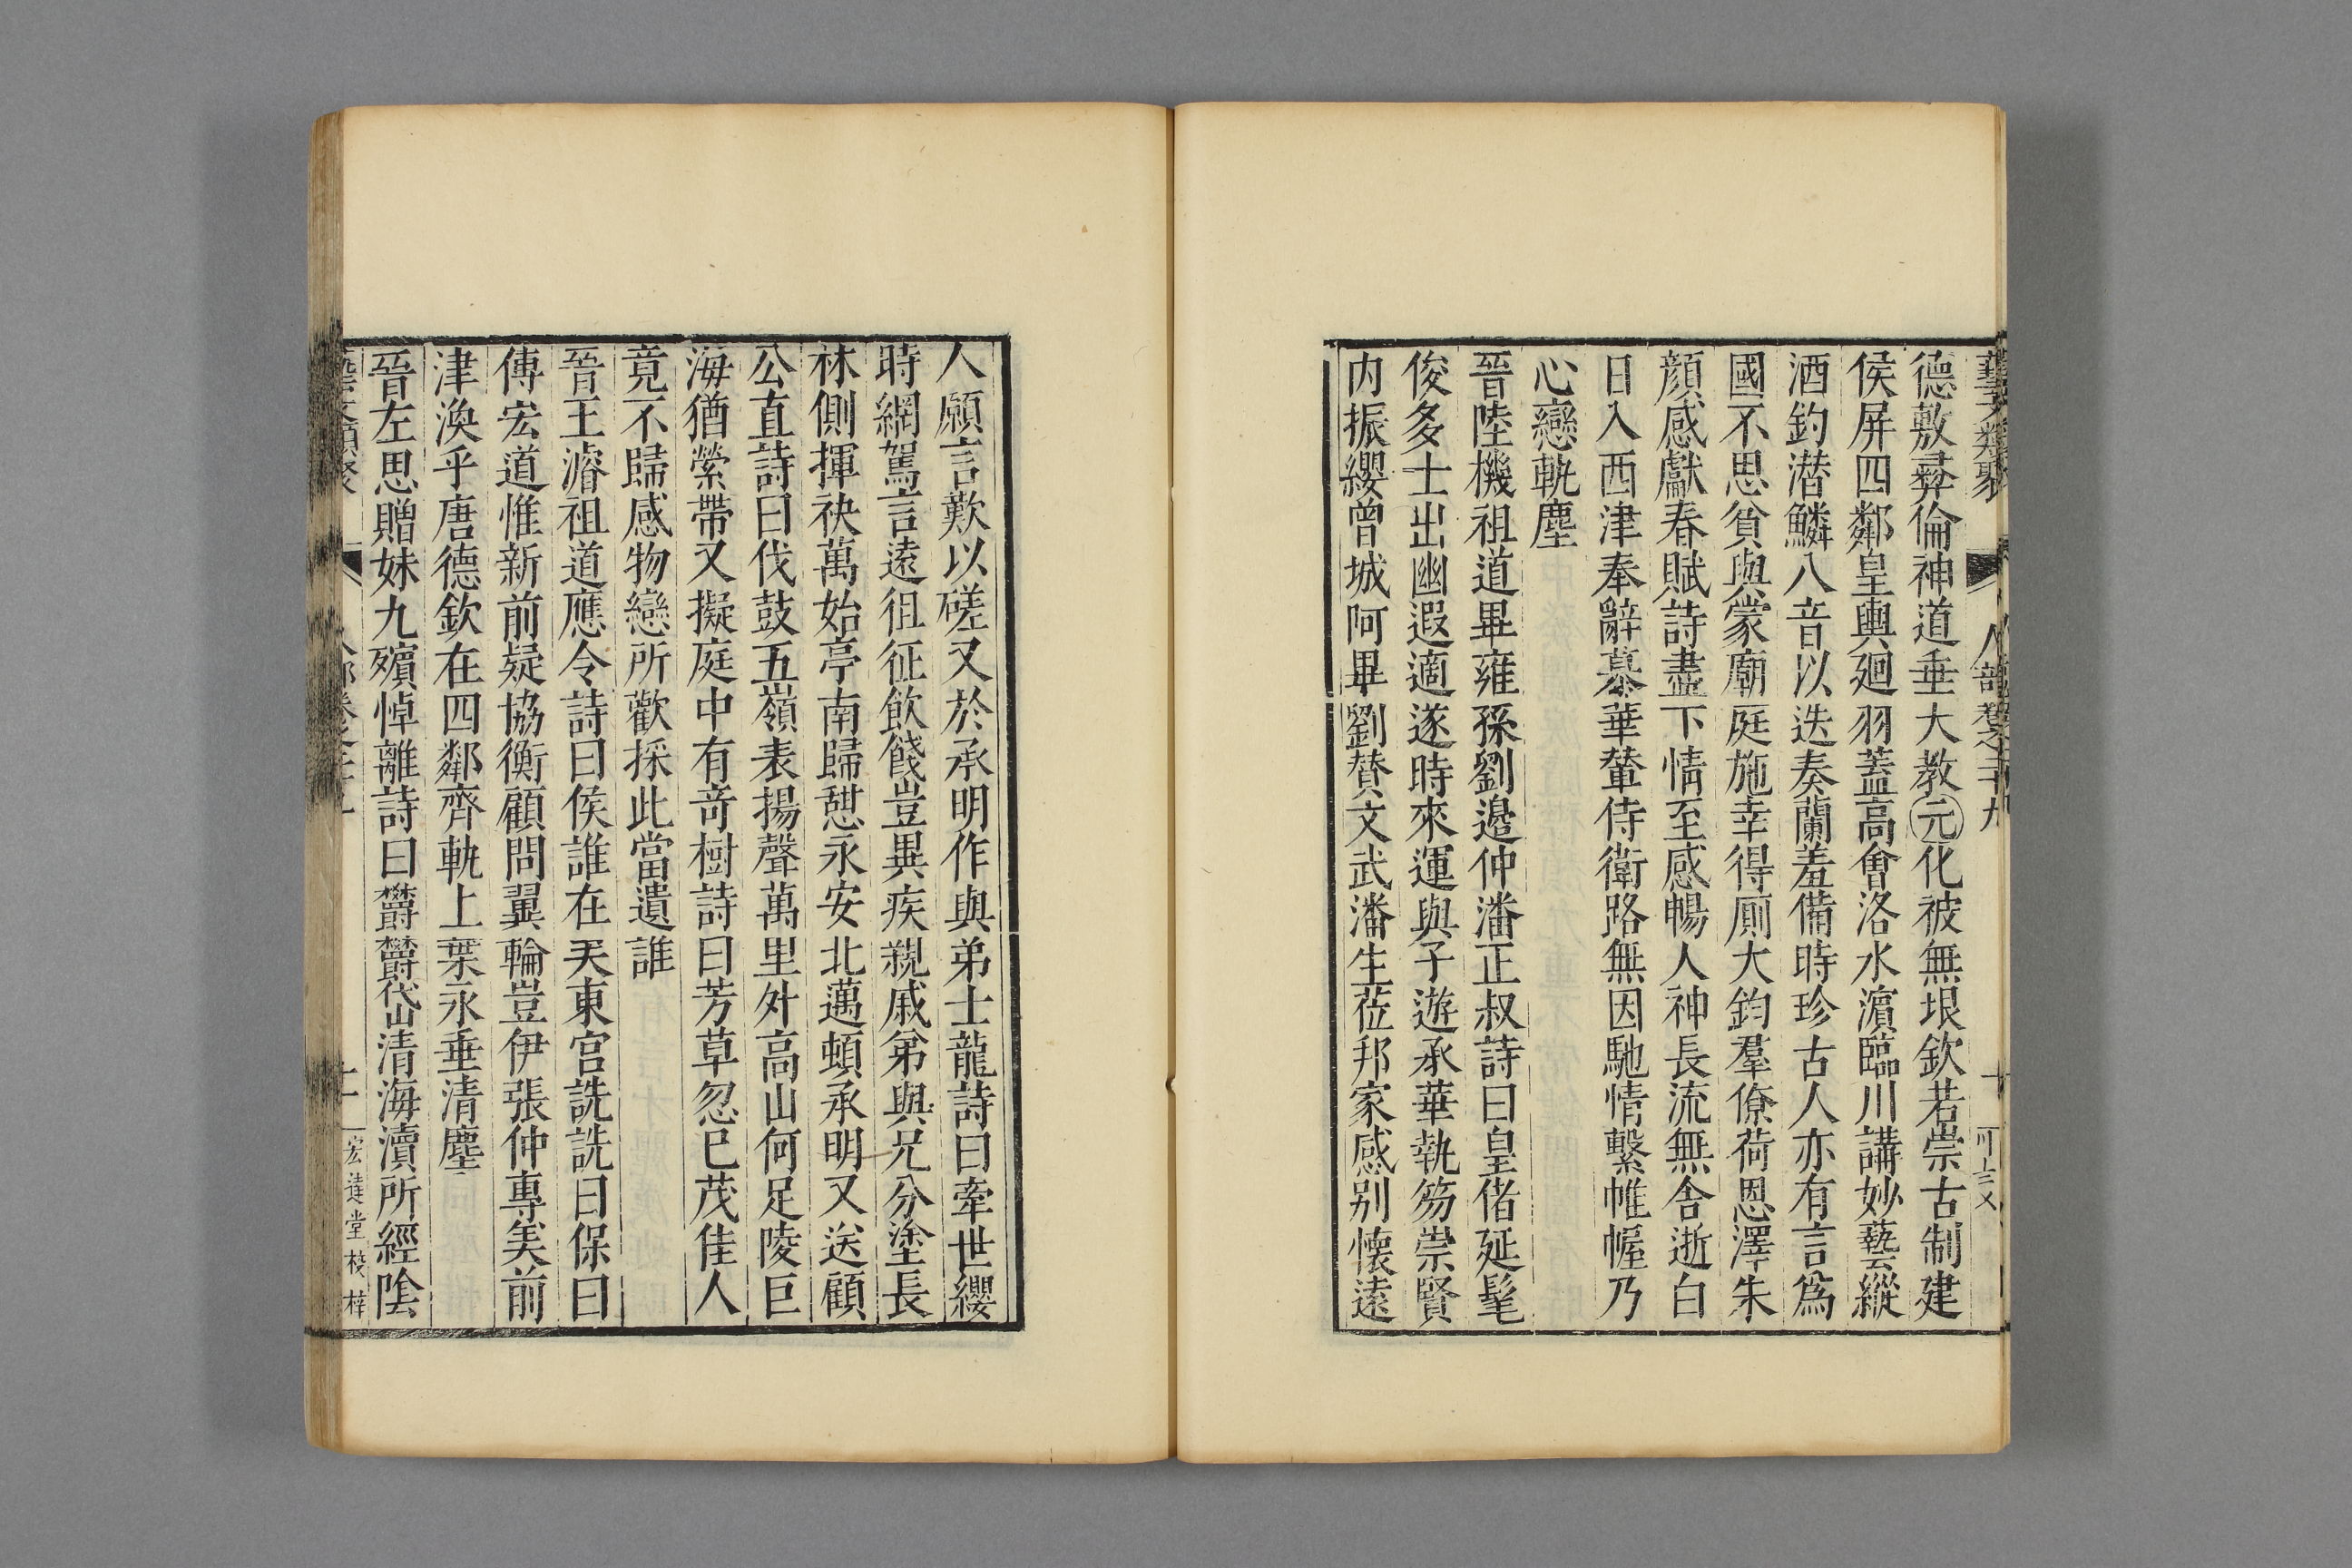 藝文類聚 人部卷之二十九 十
德敷彛倫神道垂大教元化被無垠欽若崇古制建
侯屏四鄰皇輿廻羽蓋高會洛水濵臨川講妙藝縱
酒釣潜鱗八音以迭奏蘭羞備時珍古人亦有言爲
國不思貧與蒙廟庭施幸得厠大鈞羣僚荷恩澤朱
顔感獻春賦詩盡下情至感暢人神長流無舎逝白
日入西津奉辭慕華輦侍衛路無因馳情繫帷幄乃
心戀軌塵
晉陸機祖道畢雍孫劉邉仲潘正叔詩曰皇偖延髦
俊多士出幽遐適遂時來運與子遊承華執笏崇賢
内振纓曾城阿畢劉賛文武潘生莅邦家感别懐遠
人願言歎以磋又於承明作與弟士龍詩曰牽世纓
時網駕言遠徂征飲餞豈異疾親戚弟與兄分塗長
林側揮袂萬始亭南歸憇永安北邁頓承明又送顧
公直詩曰伐鼓五嶺表揚聲萬里外高山何足陵巨
海猶縈帶又擬庭中有竒樹詩曰芳草忽已茂佳人
竟不歸感物戀所歡採此當遺誰
晉王濬祖道應令詩曰侯誰在矣東宫詵詵曰保曰
傅宏道惟新前疑協衡顧問翼輪豈伊張仲專美前
津渙乎唐德欽在四鄰齊軌上葉永垂清塵
晉左思贈妹九殯悼離詩曰欝欝岱清海瀆所經陰
宏達堂校梓